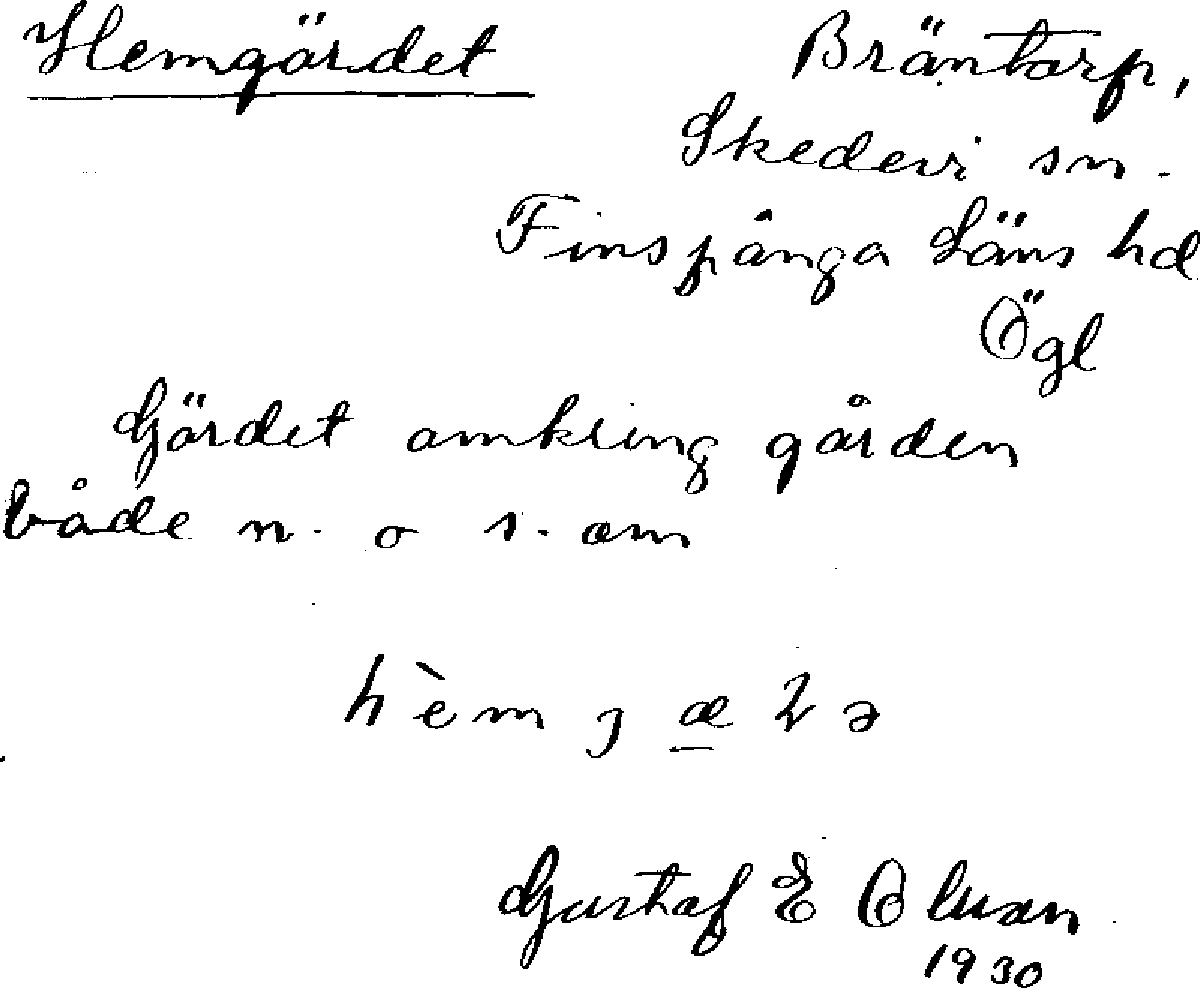 Hemgärdet
Bräntorp,
Skedevi sn.
Finspånga Läns hd
Ögl
Gärdet omkring gården
både n. o s. om
hèmjæ
Gustaf E Olsson
1930